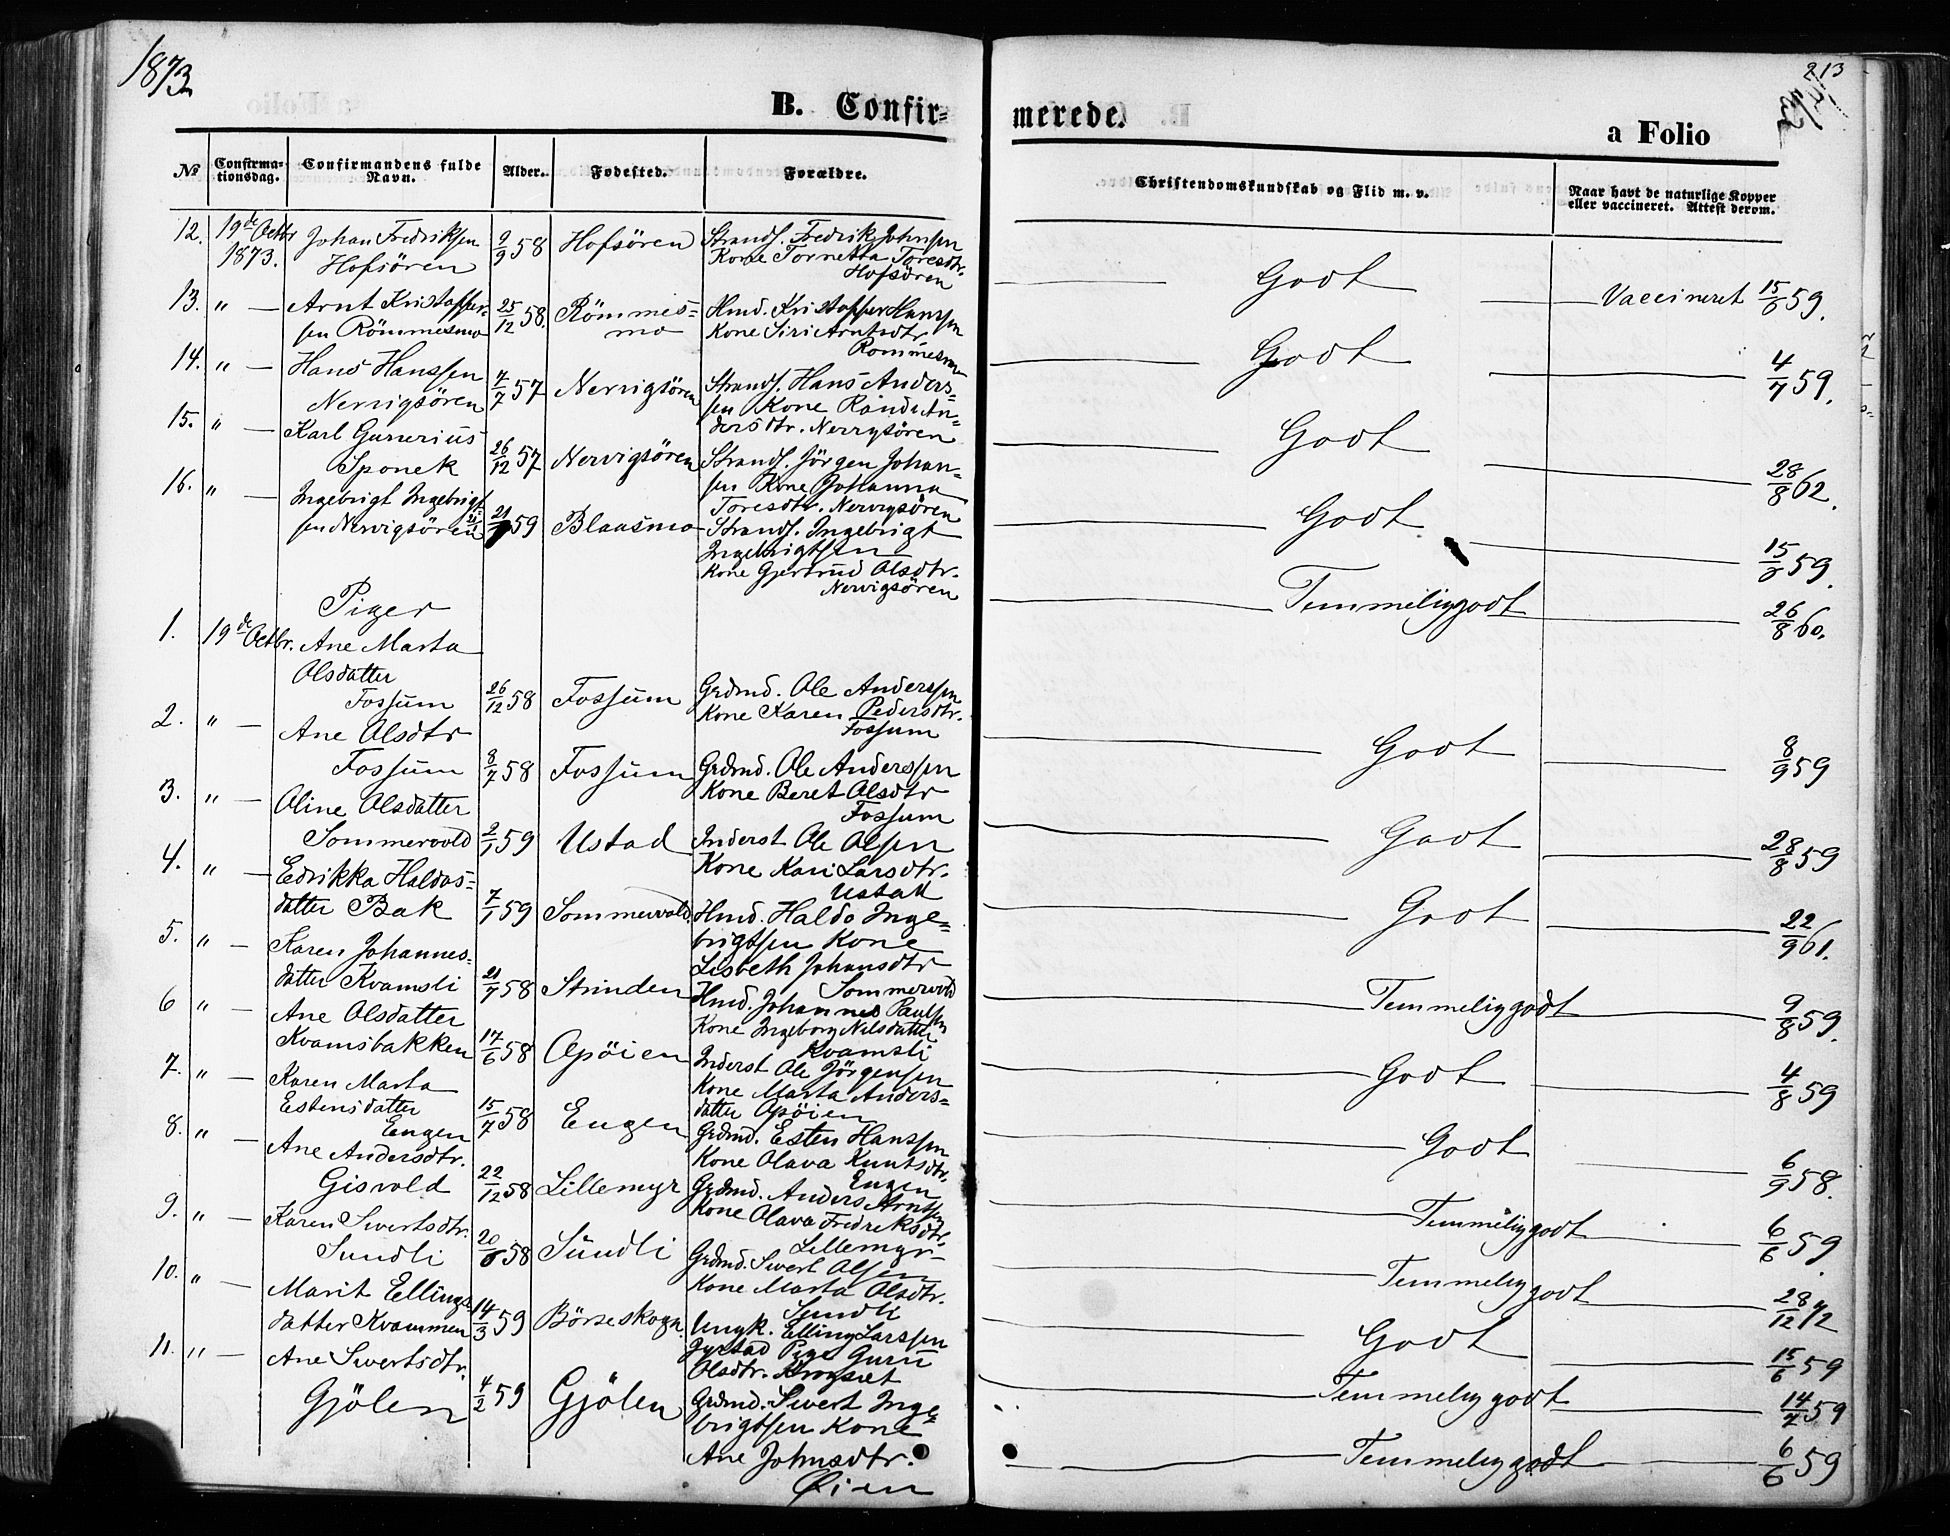 1873
213
B. Confir-
merede.
a Folio
No
Confirma-
tionsdag.
Confirmandens fulde
Navn.
Alder.
Fødested.
Forældre.
Christendomskundskab og Flid m. v.
Naar havt de naturlige Kopper
eller vaccineret. Attest derom.
12. 19de Octbr 1873. Johan Fredriksen
Hofsören
9/9 58 Hofsören
Strands. Fredrik Johnsen
Kone Tornetta Toresdtr.
Hofsören
Godt
Vaccineret 15/6 59.
13. " — Arnt Kristoffer-
sen Römmesmo
25/12 58. Römmes-
mo
Hmd. Kristoffer Hanssen
Kone Siri Arntsdtr
Rommesmo
Godt
4/7 59.
14. " — Hans Hanssen
Nervigsören
7/7 57 Nervigsören
Strands. Hans Anders-
sen Kone Randi An-
dersdtr. Nervigsören
Godt
28/8 62.
15. " — Karl Gunerius
Sponek
26/12 57 Nervigsören
Strands. Jörgen Johan-
sen Kone Johanna
Toresdtr. Nervigsören
Godt
15/8 59.
16. " — Ingebrigt Ingebrigt-
sen Nervigsören
59 Blaasmo
Strands. Ingebrigt
Ingebrigtsen
Kone Gjertrud Olsdtr.
Nervigsören
Temmelig godt
26/8 60.
Piger
1. 19de Octbr. Ane Marta
Olsdatter
Fossum
26/12 58 Fossum
Grdmd. Ole Anderssen
Kone Karen Pedersdtr.
Fossum
Godt
8/9 59
2. " — Ane Olsdtr
Fossum
8/7 58 Fossum
Grdmd. Ole Anderssen
Kone Beret Olsdtr
Fossum
Godt
28/8 59
3. " — Oline Olsdatter
Sommervold
2/1 59 Ustad
Inderst Ole Olsen
Kone Kari Larsdtr.
Ustad
Godt
22/9 61.
4. " — Edrikka Haldos-
datter Bak
7/1 59 Sommervold.
Hmd. Haldo Inge-
brigtsen Kone
Lisbeth Johansdtr
Sommervold
Temmelig godt
9/8 59.
5. " — Karen Johannes-
datter Kvamsli
21/7 58 Strinden
Hmd. Johannes Paulsen
Kone Ingeborg Nilsdatter
Kvamsli
Godt
4/8 59
6 " — Ane Olsdatter
Kvamsbakken
17/6 58 Opöien
Inderst Ole Jörgensen
Kone Marta Anders-
datter Opöien
Godt
6/9 58.
7. " — Karen Marta
Estensdatter
Engen
15/7 58 Engen
Grdmd. Esten Hanssen
Kone Olava Knutsdtr.
Engen
Temmelig godt
6/6 59.
8. " — Ane Andersdtr.
Gisvold
22/12 58 Lillemyr
Grdmd. Anders Arntsen
Kone Olava Fredriksdtr.
Lillemyr
Temmelig godt
28/12 72
9. " — Karen Sivertsdtr.
Sundli
20/6 58 Sundli
Grdmd. Sivert Olsen
Kone Marta Olsdtr.
Sundli
Godt
15/6 59
10. " — Marit Ellings-
datter Kvammen
14/3 59 Börseskogn.
Ungk. Elling Larssen
Gyltad Pige Guru
Olsdtr. Krogset
Temmelig godt
14/7 59
11. " — Ane Sivertsdtr.
Gjölen
4/2 59 Gjölen
Grdmd. Sivert Inge-
brigtsen Kone
Ane Johnsdtr.
Öien
Temmelig godt
6/6 59